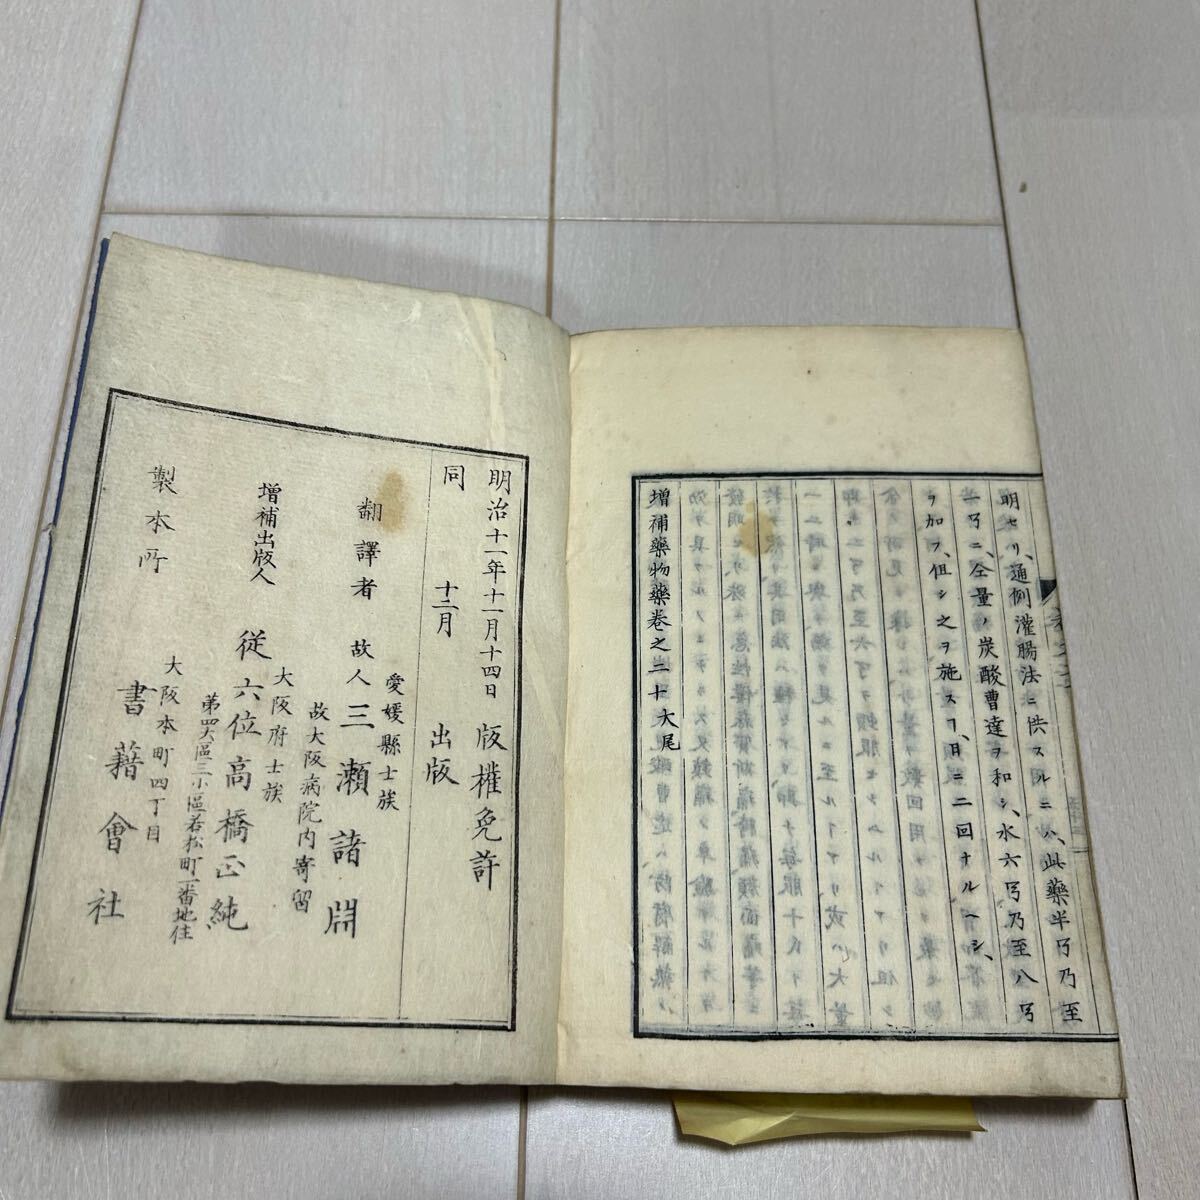 明セリ、通例灌腸法ニ供スルニハ、此藥半弓乃至
一弓ニ、仝量ノ炭酸曹達ヲ和シ、水六弓乃至八弓
ヲ加フ、但シ之ヲ施スヿ、日ニ二回ナルヘシ、
增補藥物藥卷之二十大尾
明治十一年十一月十四日 版權免許
同 十二月 出版
愛媛縣士族
故大阪病院內寄留
翻譯者 故人 三瀬諸淵
大阪府士族
增補出版人 從六位 高橋正純
第四大區三小區若松町一番地住
大阪本町四丁目
製本所 書藉會社